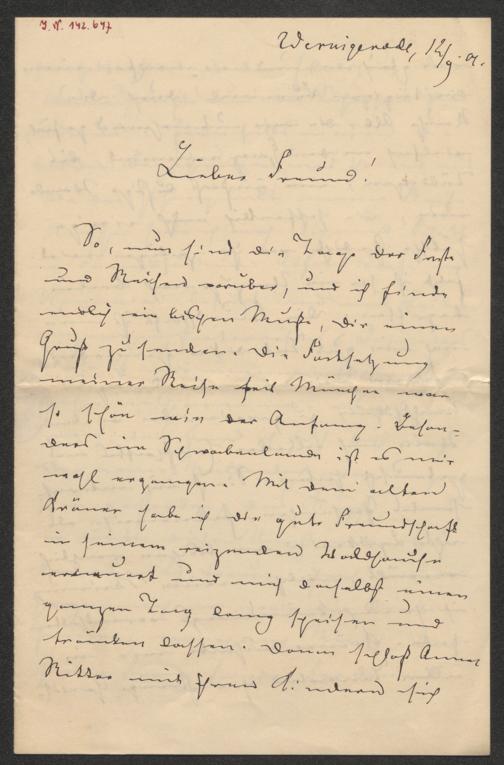 J.N. 142.647
Wernigerode, 12/9. 01.
Lieber Freund!
So, nun sind die Tage der Feste
und Reisen vorüber, und ich finde
endlich ein bischen Muße, dir einen
Gruß zu senden. Die Fortsetzung
meiner Reise seit München war
so schön wie der Anfang. Beson-
ders im Schwabenlande ist es mir
wohl ergangen. Mit dem alten
Kröner habe ich die gute Freundschaft
in seinem reizenden Waldhause
erneuert und mich daselbst einen
ganzen Tag lang speisen und
tränken lassen. Dann schloß Anna
Ritter mit ihren Kindern sich